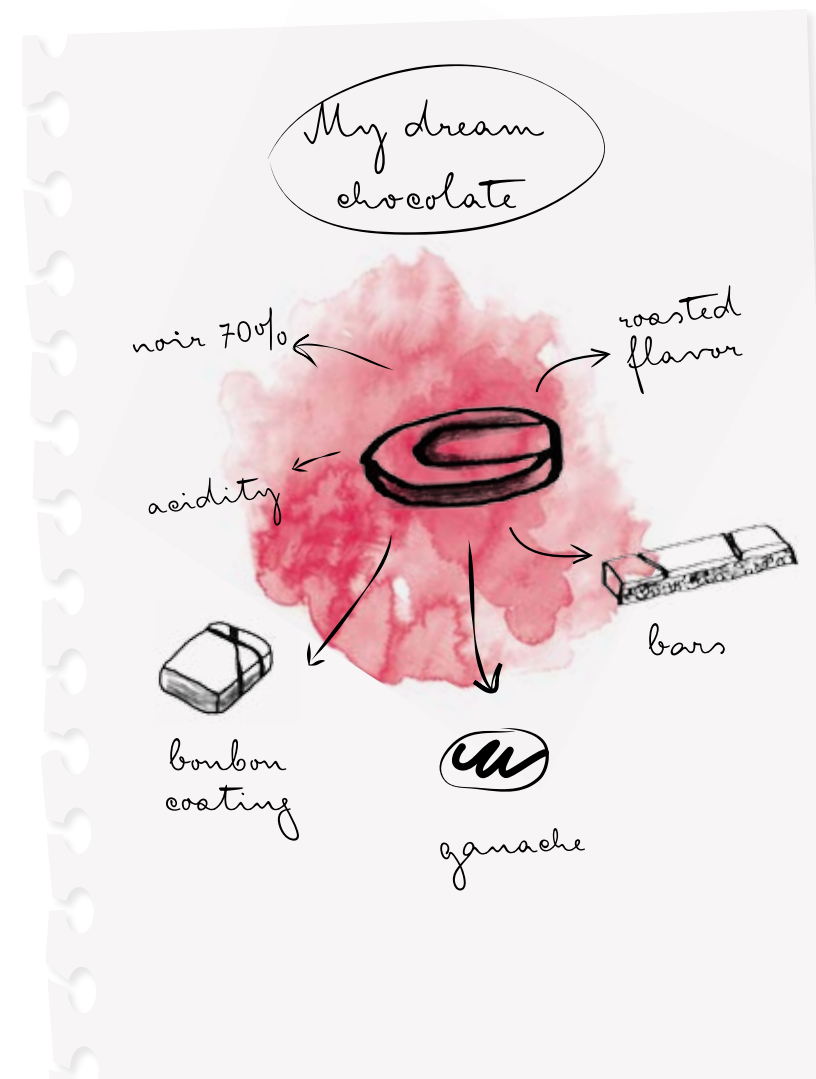 My dream
chocolate
noir 70%
roasted
flavor
acidity
bars
bonbon
coating
ganache